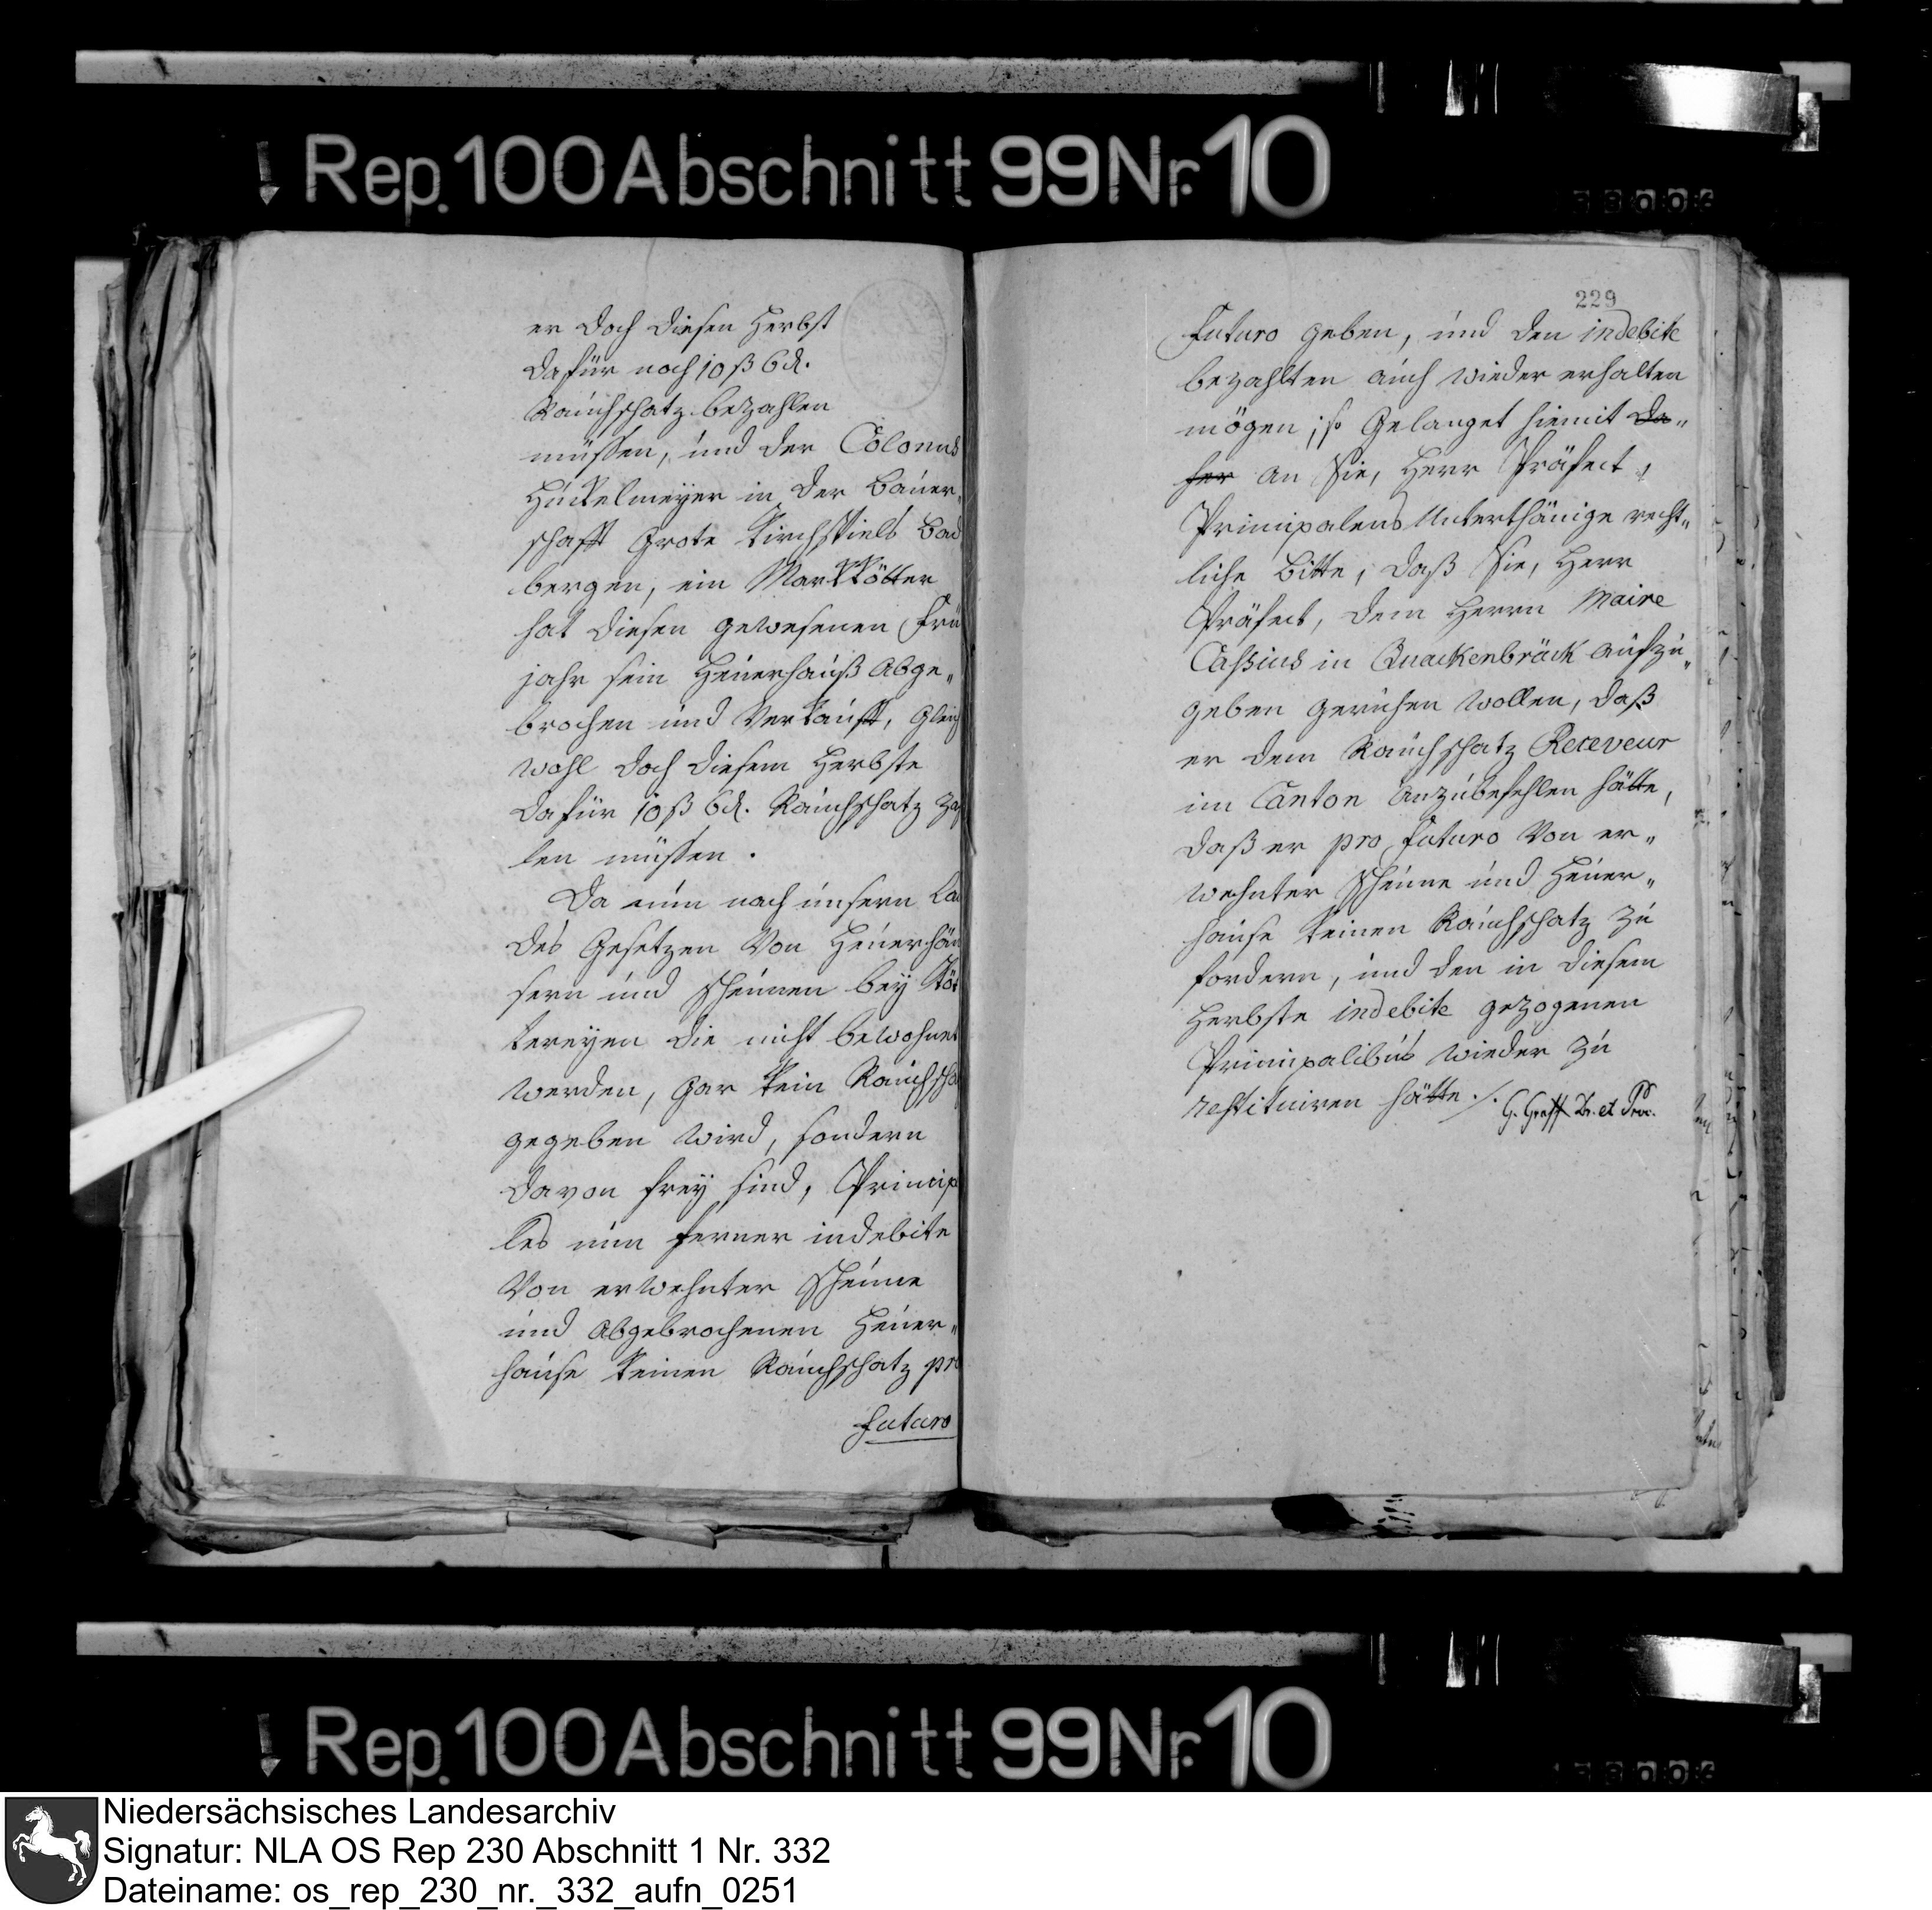 Rep. 100 Abschnitt 99 Nr. 10
er doch diesen Herbst
dafür noch 10 ß 6 d.
Rauchschatz bezahlen
müssen, und der Colonus
Hückelmeyer in der Bauer„
schafft Grote Kirchspiels Bad
bergen, ein Markkötter
hat diesen gewesenen Frü
jahr sein Heuerhauß abge„
brochen und verkaufft, gleich
wohl doch diesem Herbste
dafür 10 ß 6 d. Rauchschatz zah
len müssen.
Da nun nach unsern Lan
des Gesetzen von Heuerhäu
sern und Scheunen bey Köt
tereyen die nicht bewohnet
werden, gar kein Rauchscha
gegeben wird, sondern
davon frey sind, Principa
les nun ferner indebite
von erwehnter Scheune
und abgebrochenen Heuer„
hause keinen Rauchschatz pro
futuro
229
futuro geben, und den indebite
bezahlten auch wieder erhalten
mögen; so gelanget hiemit da„
her an Sie, Herr Präfect,
Principalens Unterthänige recht„
liche Bitte, daß Sie, Herr
Präfect, dem Herrn Maire
Cassius in Quackenbrück aufzu„
geben geruhen wollen, daß
er dem Rauchschatz Receveur
im Canton anzubefehlen hätte,
daß er pro futuro von er„
wehnter Scheune und Heuer„
hause keinen Rauchschatz zu
fordern, und den in diesem
Herbste indebite gezogenen
Principalibus wieder zu
restituiren hätte ./.
G. Graff Dr. et Proc.
Rep. 100 Abschnitt 99 Nr. 10
Niedersächsisches Landesarchiv
Signatur: NLA OS Rep 230 Abschnitt 1 Nr. 332
Dateiname: os_rep_230_nr._332_aufn_0251